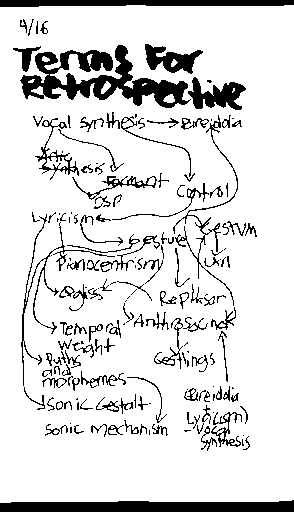 4/16
Terms For
Retrospective
Vocal Synthesis Pareidolia
Synthesis
Formant
DSP
Control
Lyricism
Gesture
GestVM
Pianocentrism
Rephasor
Temporal
Weight
Gestlings
Paths
and
morphemes
Sonic Gestalt
Sonic Mechanism
Pareidolia
+
Lyricism)
- Vocal
Synthesis